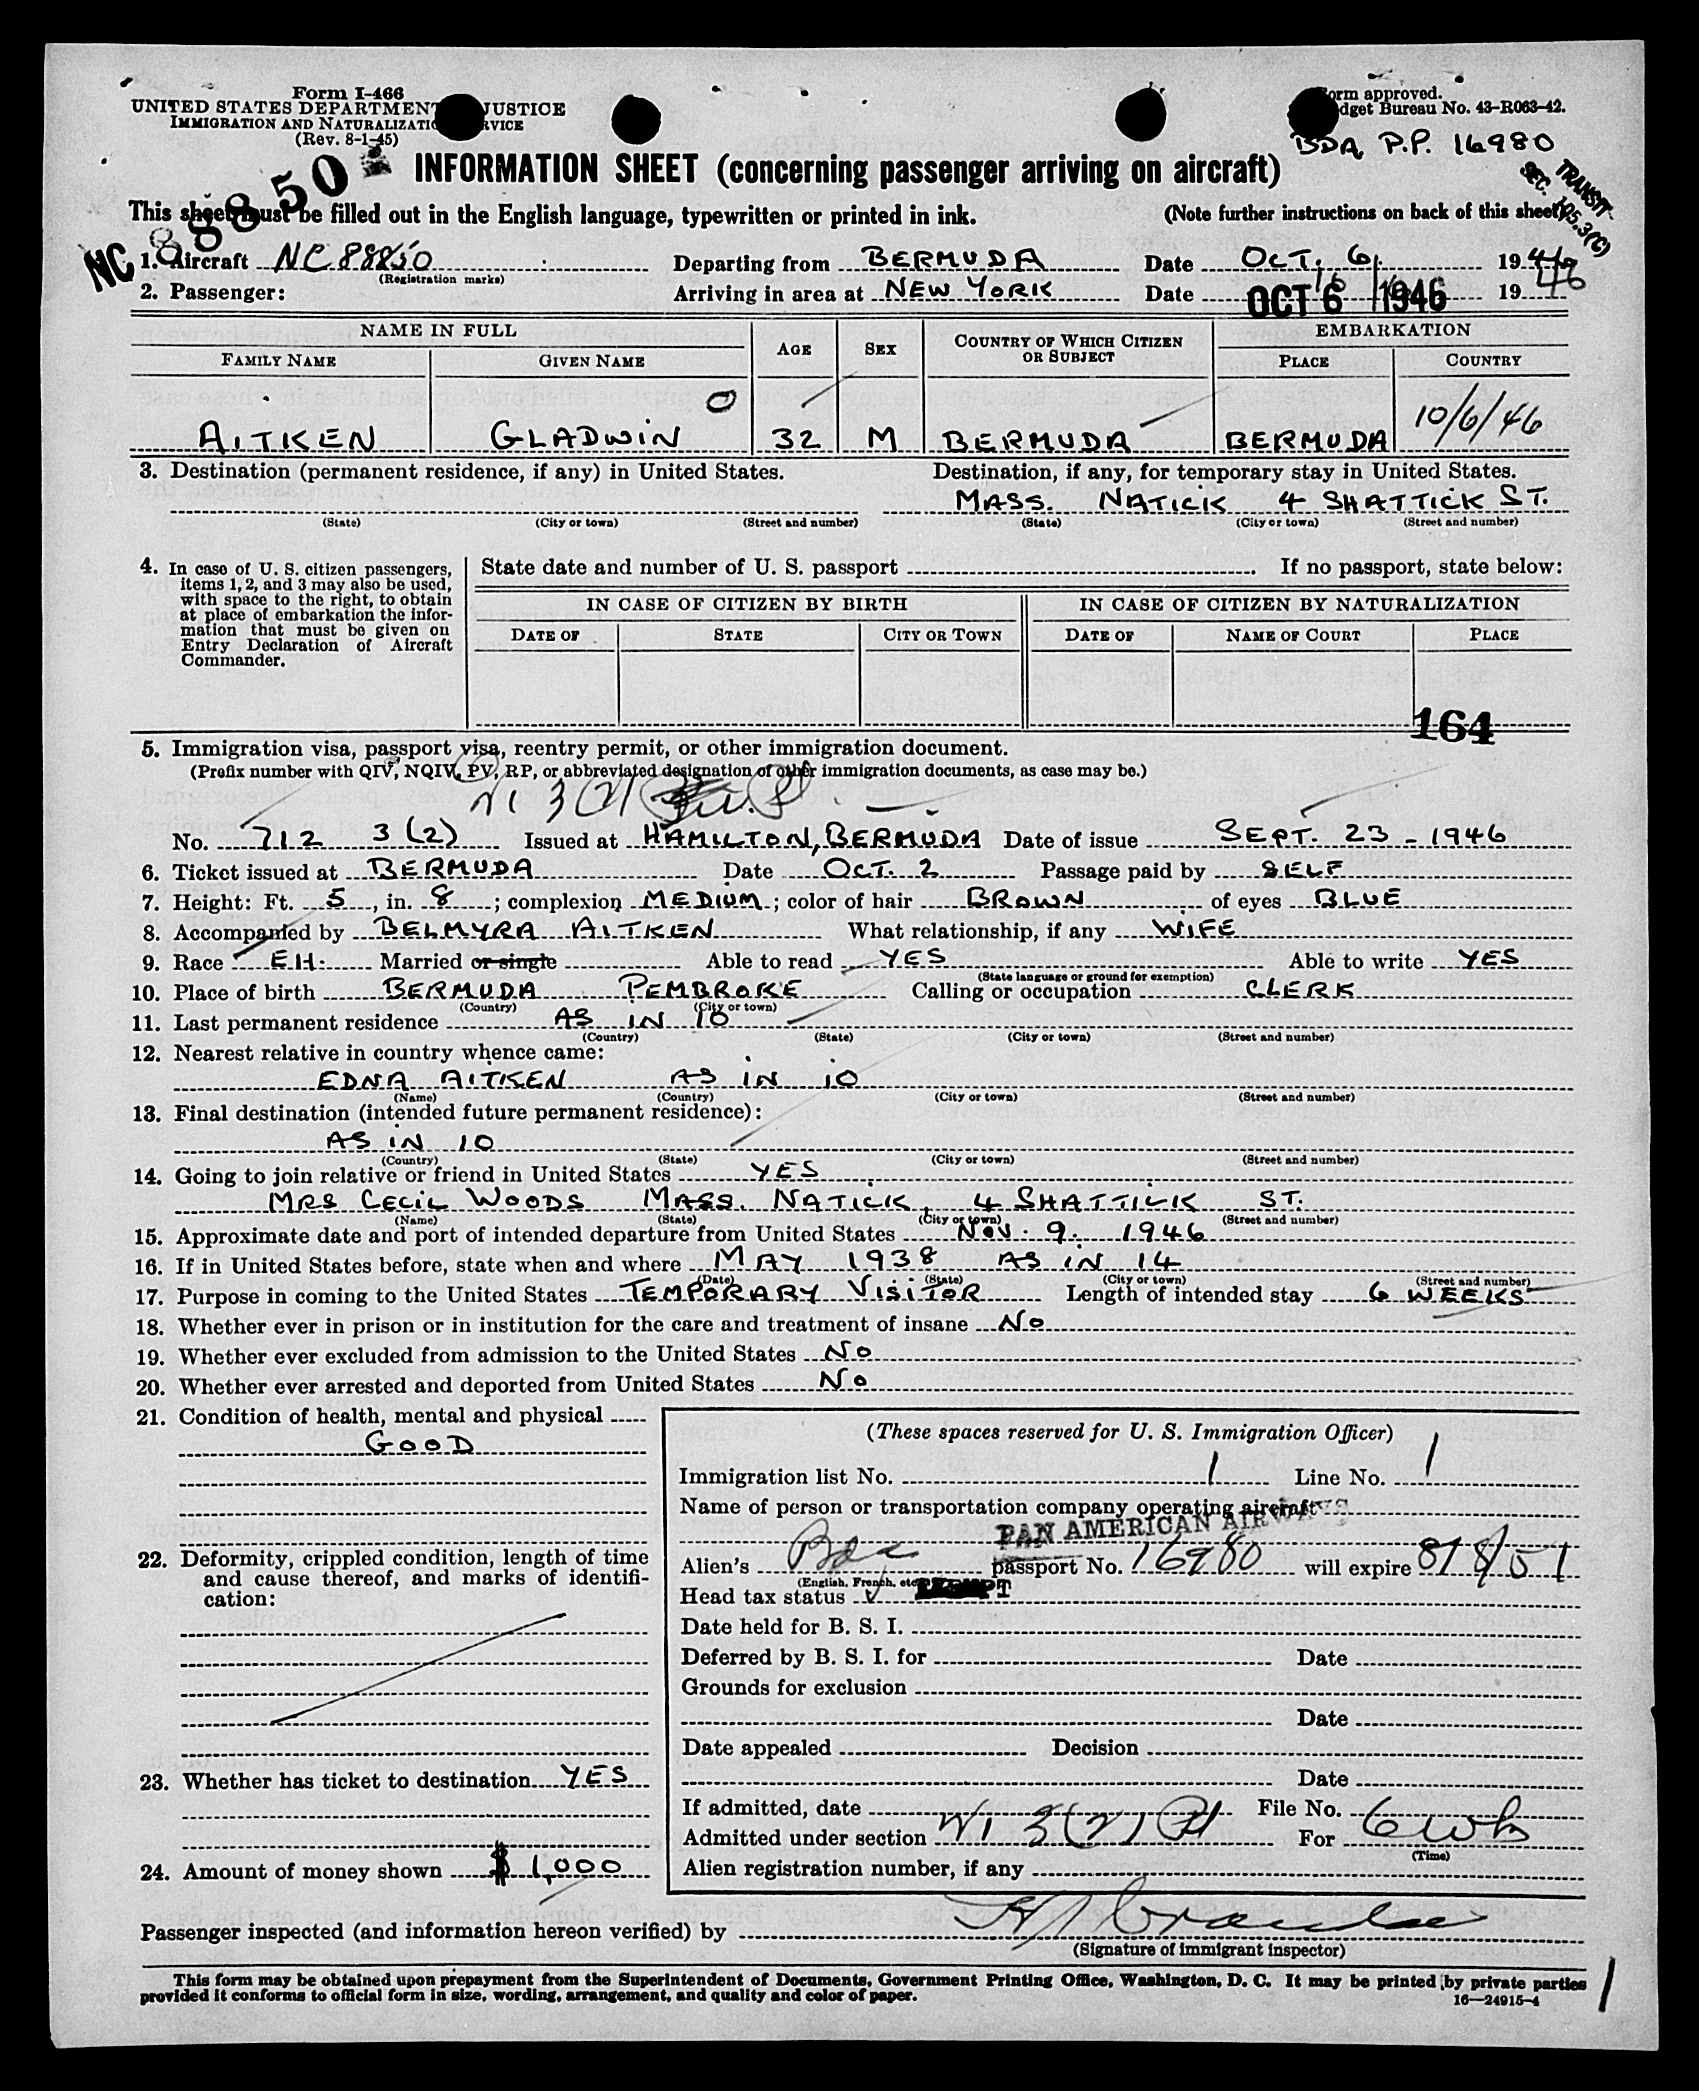 Form I-466
UNITED STATES DEPARTMENT JUSTICE
IMMIGRATION AND NATURALIZATION
(Rev. 8-1-45)
Form approved.
Budget Bureau No. 43-R063-42.
BDA P.P. 16980
SEC. TRANSIT 105.3(C)
NC 88850
INFORMATION SHEET (concerning passenger arriving on aircraft)
This sheet must be filled out in the English language, typewritten or printed in ink. (Note further instructions on back of this sheet)
1. Aircraft NC 88850 Departing from BERMUDA Date OCT. 6 1946
(Registration marks)
2. Passenger: Arriving in area at NEW YORK Date OCT 6 1946 1946
NAME IN FULL EMBARKATION
FAMILY NAME GIVEN NAME AGE SEX COUNTRY OF WHICH CITIZEN OR SUBJECT PLACE COUNTRY
AITKEN GLADWIN 32 M BERMUDA BERMUDA 10/6/46
3. Destination (permanent residence, if any) in United States. Destination, if any, for temporary stay in United States.
MASS. NATICK 4 SHATTICK ST.
(State) (City or town) (Street and number) (State) (City or town) (Street and number)
4. In case of U. S. citizen passengers, items 1, 2, and 3 may also be used, with space to the right, to obtain at place of embarkation the information that must be given on Entry Declaration of Aircraft Commander.
State date and number of U. S. passport If no passport, state below:
IN CASE OF CITIZEN BY BIRTH IN CASE OF CITIZEN BY NATURALIZATION
DATE OF STATE CITY OR TOWN DATE OF NAME OF COURT PLACE
164
5. Immigration visa, passport visa, reentry permit, or other immigration document.
(Prefix number with QIV, NQIV, PV, RP, or abbreviated designation of other immigration documents, as case may be.)
No. 712 3(2) Issued at HAMILTON, BERMUDA Date of issue SEPT. 23 - 1946
6. Ticket issued at BERMUDA Date OCT. 2 Passage paid by SELF
7. Height: Ft. 5, in. 8; complexion MEDIUM; color of hair BROWN of eyes BLUE
8. Accompanied by BELMYRA AITKEN What relationship, if any WIFE
9. Race E.H. Married or single Able to read YES Able to write YES
(State language or ground for exemption)
10. Place of birth BERMUDA PEMBROKE Calling or occupation CLERK
(Country) (City or town)
11. Last permanent residence AS IN 10
(Country) (State) (City or town) (Street and number)
12. Nearest relative in country whence came:
EDNA AITKEN AS IN 10
(Name) (Country) (City or town) (Street and number)
13. Final destination (intended future permanent residence):
AS IN 10
(Country) (State) (City or town) (Street and number)
14. Going to join relative or friend in United States YES
MRS CECIL WOODS MASS. NATICK, 4 SHATTICK ST.
(Name) (State) (City or town) (Street and number)
15. Approximate date and port of intended departure from United States NOV. 9. 1946
16. If in United States before, state when and where MAY 1938 AS IN 14
(Date) (State) (City or town) (Street and number)
17. Purpose in coming to the United States TEMPORARY VISITOR Length of intended stay 6 WEEKS
18. Whether ever in prison or in institution for the care and treatment of insane NO
19. Whether ever excluded from admission to the United States NO
20. Whether ever arrested and deported from United States NO
21. Condition of health, mental and physical
GOOD
22. Deformity, crippled condition, length of time and cause thereof, and marks of identification:
23. Whether has ticket to destination YES
24. Amount of money shown $1,000
(These spaces reserved for U. S. Immigration Officer)
Immigration list No. 1 Line No. 1
Name of person or transportation company operating aircraft
PAN AMERICAN AIRWAYS
Alien's Bda passport No. 16980 will expire 8/8/51
(English, French, etc.)
Head tax status
Date held for B. S. I.
Deferred by B. S. I. for Date
Grounds for exclusion
Date
Date appealed Decision
Date
If admitted, date File No.
Admitted under section 3(2) For 6 wks
(Time)
Alien registration number, if any
Passenger inspected (and information hereon verified) by
(Signature of immigrant inspector)
This form may be obtained upon prepayment from the Superintendent of Documents, Government Printing Office, Washington, D. C. It may be printed by private parties
provided it conforms to official form in size, wording, arrangement, and quality and color of paper.
16—24915-4
1